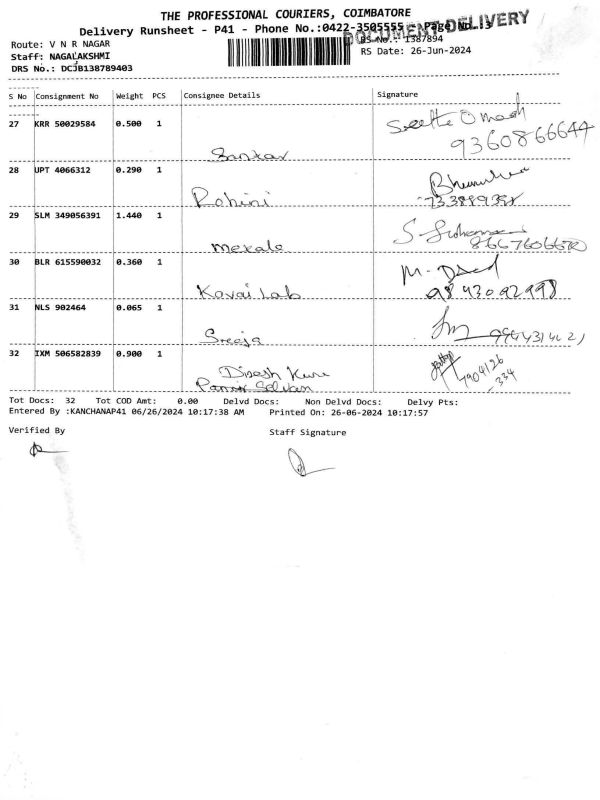 THE PROFESSIONAL COURIERS, COIMBATORE
Delivery Runsheet - P41 - Phone No.:0422-3505555 - Page No.:3
DOCUMENT DELIVERY
Route: V N R NAGAR RS No.: 1387894
Staff: NAGALAKSHMI RS Date: 26-Jun-2024
DRS No.: DCJB138789403
S No Consignment No Weight PCS Consignee Details Signature
27 KRR 50029584 0.500 1 Sankar 9360866644
28 UPT 4066312 0.290 1 Rohini
29 SLM 349056391 1.440 1 Mekala
30 BLR 615590032 0.360 1 Kovai Lab 9843092998
31 NLS 902464 0.065 1 Sreeja
32 IXM 506582839 0.900 1 7904126
-334
Selvan
Tot Docs: 32 Tot COD Amt: 0.00 Delvd Docs: Non Delvd Docs: Delvy Pts:
Entered By :KANCHANAP41 06/26/2024 10:17:38 AM Printed On: 26-06-2024 10:17:57
Verified By Staff Signature